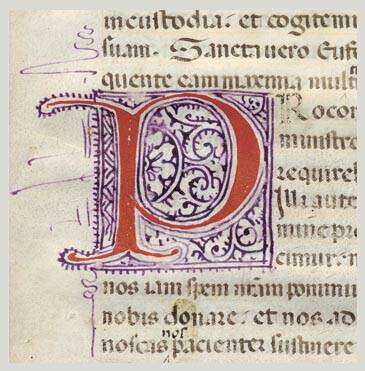 incustodia. et cogitemu
suam. Sancta uero Eufe
quente eam maxima mult
P Rocon
ministr
requiret
Illi aute
mine pre
nos iam spem nr̄am ponimu
nobis donare. et nos ad
nos
noscas pacienter sustinere